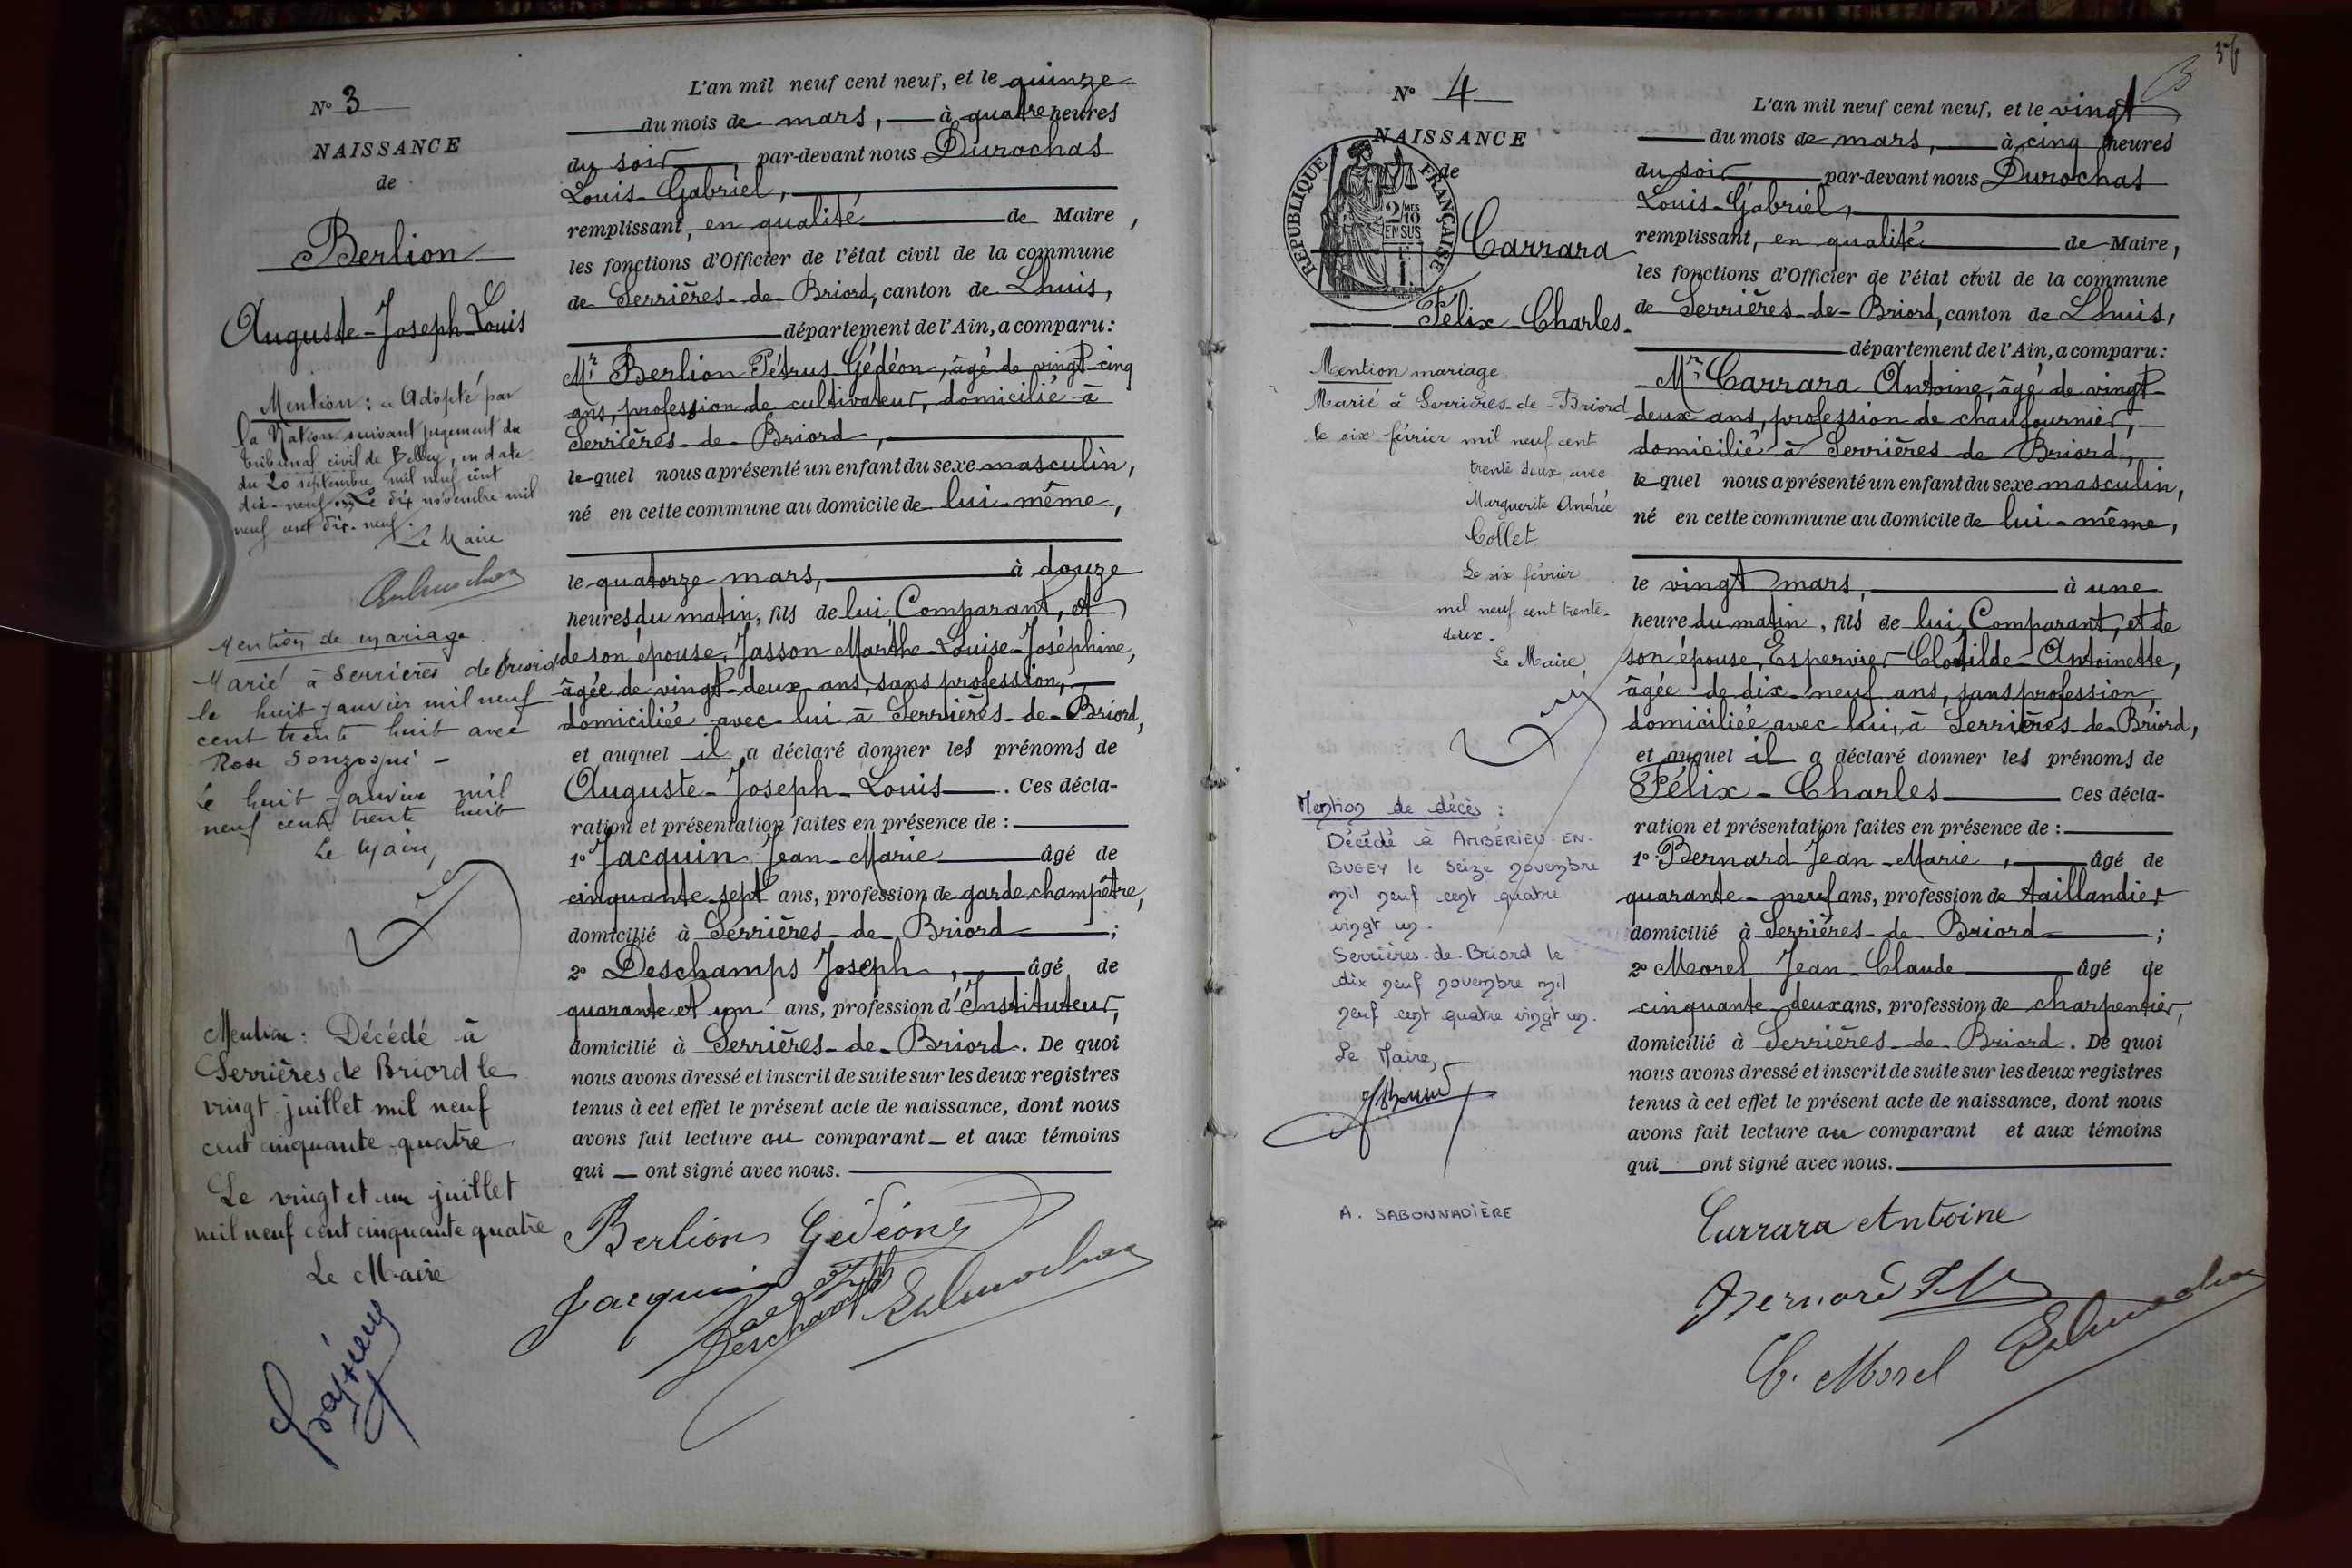 N° 3
NAISSANCE
de
Berlion
Auguste-Joseph-Louis
Mention : « Adopté par
la Nation suivant jugement du
tribunal civil de Belley, en date
du 20 septembre mil neuf cent
dix-neuf ». Le dix novembre mil
neuf cent dix-neuf.
Le Maire
Mention de mariage
Marié à Serrières de Briord
le huit janvier mil neuf
cent trente huit avec
Rose
le huit janvier mil
neuf cent trente huit
Le Maire,
Mention : Décédé à
Serrières de Briord le
vingt juillet mil neuf
cent cinquante-quatre
Le vingt et un juillet
mil neuf cent cinquante quatre
Le Maire
L'an mil neuf cent neuf, et le quinze
du mois de mars, à quatre heures
du soir, par-devant nous Durochat
Louis-Gabriel,
remplissant, en qualité de Maire,
les fonctions d'Officier de l'état civil de la commune
de Serrières-de-Briord, canton de Lhuis,
département de l'Ain, a comparu :
Mr Berlion Pétrus Gédéon, âgé de vingt-cinq
ans, profession de cultivateur, domicilié à
Serrières-de-Briord,
lequel nous a présenté un enfant du sexe masculin,
né en cette commune au domicile de lui-même,
le quatorze mars, à douze
heures du matin, fils de lui Comparant, et
de son épouse, Jasson Marthe-Louise-Joséphine,
âgée de vingt-deux ans, sans profession,
domiciliée avec lui à Serrières-de-Briord,
et auquel il a déclaré donner les prénoms de
Auguste-Joseph-Louis. Ces décla-
ration et présentation faites en présence de :
1° Jacquin Jean-Marie âgé de
cinquante-sept ans, profession de garde champêtre,
domicilié à Serrières-de-Briord ;
2° Deschamps Joseph, âgé de
quarante et un ans, profession d'Instituteur,
domicilié à Serrières-de-Briord. De quoi
nous avons dressé et inscrit de suite sur les deux registres
tenus à cet effet le présent acte de naissance, dont nous
avons fait lecture au comparant et aux témoins
qui ont signé avec nous.
Berlion Gédéon
Jacquin
Deschamps
N° 4
NAISSANCE
de
REPUBLIQUE FRANÇAISE
2/10 MES
EN SUS
Carrara
Félix-Charles
Mention mariage
Marié à Serrières-de-Briord
le six février mil neuf cent
trente deux avec
Marguerite Andrée
Collet
Le six février
mil neuf cent trente-
deux.
Le Maire,
Mention de décès :
Décédé à AMBÉRIEU-EN-
BUGEY le seize novembre
mil neuf cent quatre
vingt un.
Serrières-de-Briord le
dix neuf novembre mil
neuf cent quatre vingt un.
Le Maire,
A. SABONNADIÈRE
L'an mil neuf cent neuf, et le vingt
du mois de mars, à cinq heures
du soir par-devant nous Durochat
Louis-Gabriel,
remplissant, en qualité de Maire,
les fonctions d'Officier de l'état civil de la commune
de Serrières-de-Briord, canton de Lhuis,
département de l'Ain, a comparu :
Mr Carrara Antoine, âgé de vingt-
deux ans, profession de chaufournier,
domicilié à Serrières-de-Briord,
lequel nous a présenté un enfant du sexe masculin,
né en cette commune au domicile de lui-même,
le vingt mars, à une
heure du matin, fils de lui Comparant, et de
son épouse, Espervier Clotilde-Antoinette,
âgée de dix-neuf ans, sans profession,
domiciliée avec lui, à Serrières-de-Briord,
et auquel il a déclaré donner les prénoms de
Félix-Charles Ces décla-
ration et présentation faites en présence de :
1° Bernard Jean-Marie, âgé de
quarante-neuf ans, profession de taillandier
domicilié à Serrières-de-Briord ;
2° Morel Jean-Claude âgé de
cinquante-deux ans, profession de charpentier,
domicilié à Serrières-de-Briord. De quoi
nous avons dressé et inscrit de suite sur les deux registres
tenus à cet effet le présent acte de naissance, dont nous
avons fait lecture au comparant et aux témoins
qui ont signé avec nous.
Carrara Antoine
Bernard
C. Morel